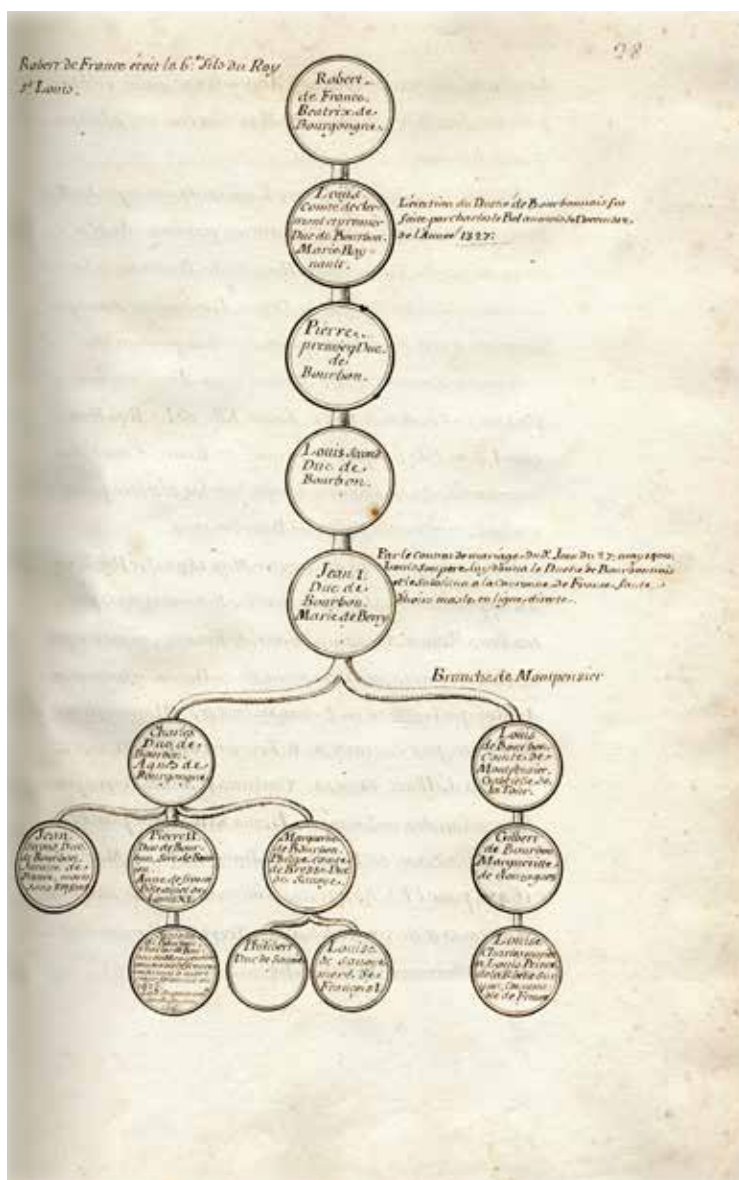 28
Robert de France étoit le 6.e fils du Roy
St. Louis.
Robert
de France.
Beatrix de
Bourgongne
Louis
Comte de cler-
mont et premier
Duc de Bourbon.
Marie Hay-
nault.
L'érection du Duché de Bourbonnois fut
faite par Charles le Bel au mois de Decembre
de l'Année 1327.
Pierre
premier Duc
de
Bourbon.
Louis second
Duc de
Bourbon.
Jean I.
Duc de
Bourbon.
Marie de Berry
Par le de mariage du d. Jean du 27. may 1400.
Louis son pere luy donna le Duché de Bourbonnois
a la Couronne de France faute
d'hoirs masle en ligne directe.
Branche de Monpensier
Charles
Duc de
Bourbon.
Agnes de
Bourgongne
Louis
de Bourbon
Comte de
Monpensier
Gabrielle de
la Tour.
Jean
second Duc
de Bourbon.
Jeanne de
France, mort
sans enfans
Pierre II.
Duc de Bour-
bon, Sire de Beau-
jeu.
Anne de france
fille de
Louis XI.
Marguerite
de Bourbon.
Philippe comte
de Bresse Duc
de Savoye
Gilbert
de Bourbon
Marguerite
de Gonzagues
1505
Philibert
Duc de Savoie
Louise
de Savoye
mere de
François I.
Louise
mariée
a Louis Prince
de la Roche sur
yon,
de France